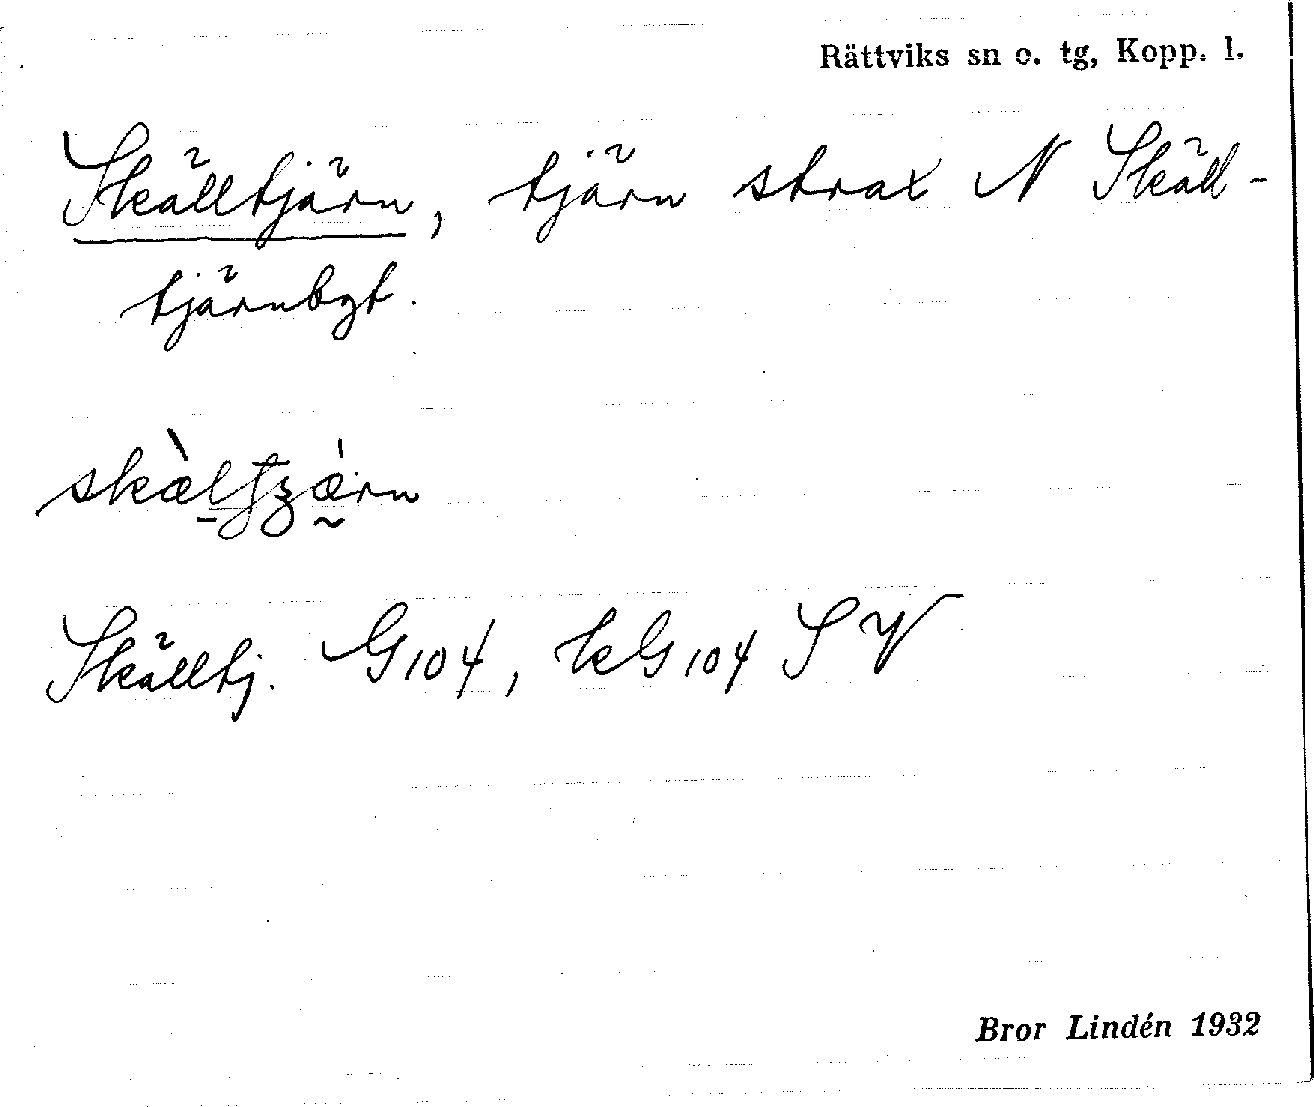 Rättviks sn o. tg, Kopp. l.
Skälltjärn, tjärn strax N Skäll-
tjärnbgt.
Skälltj. G104, kG104 SV
Bror Lindén 1932